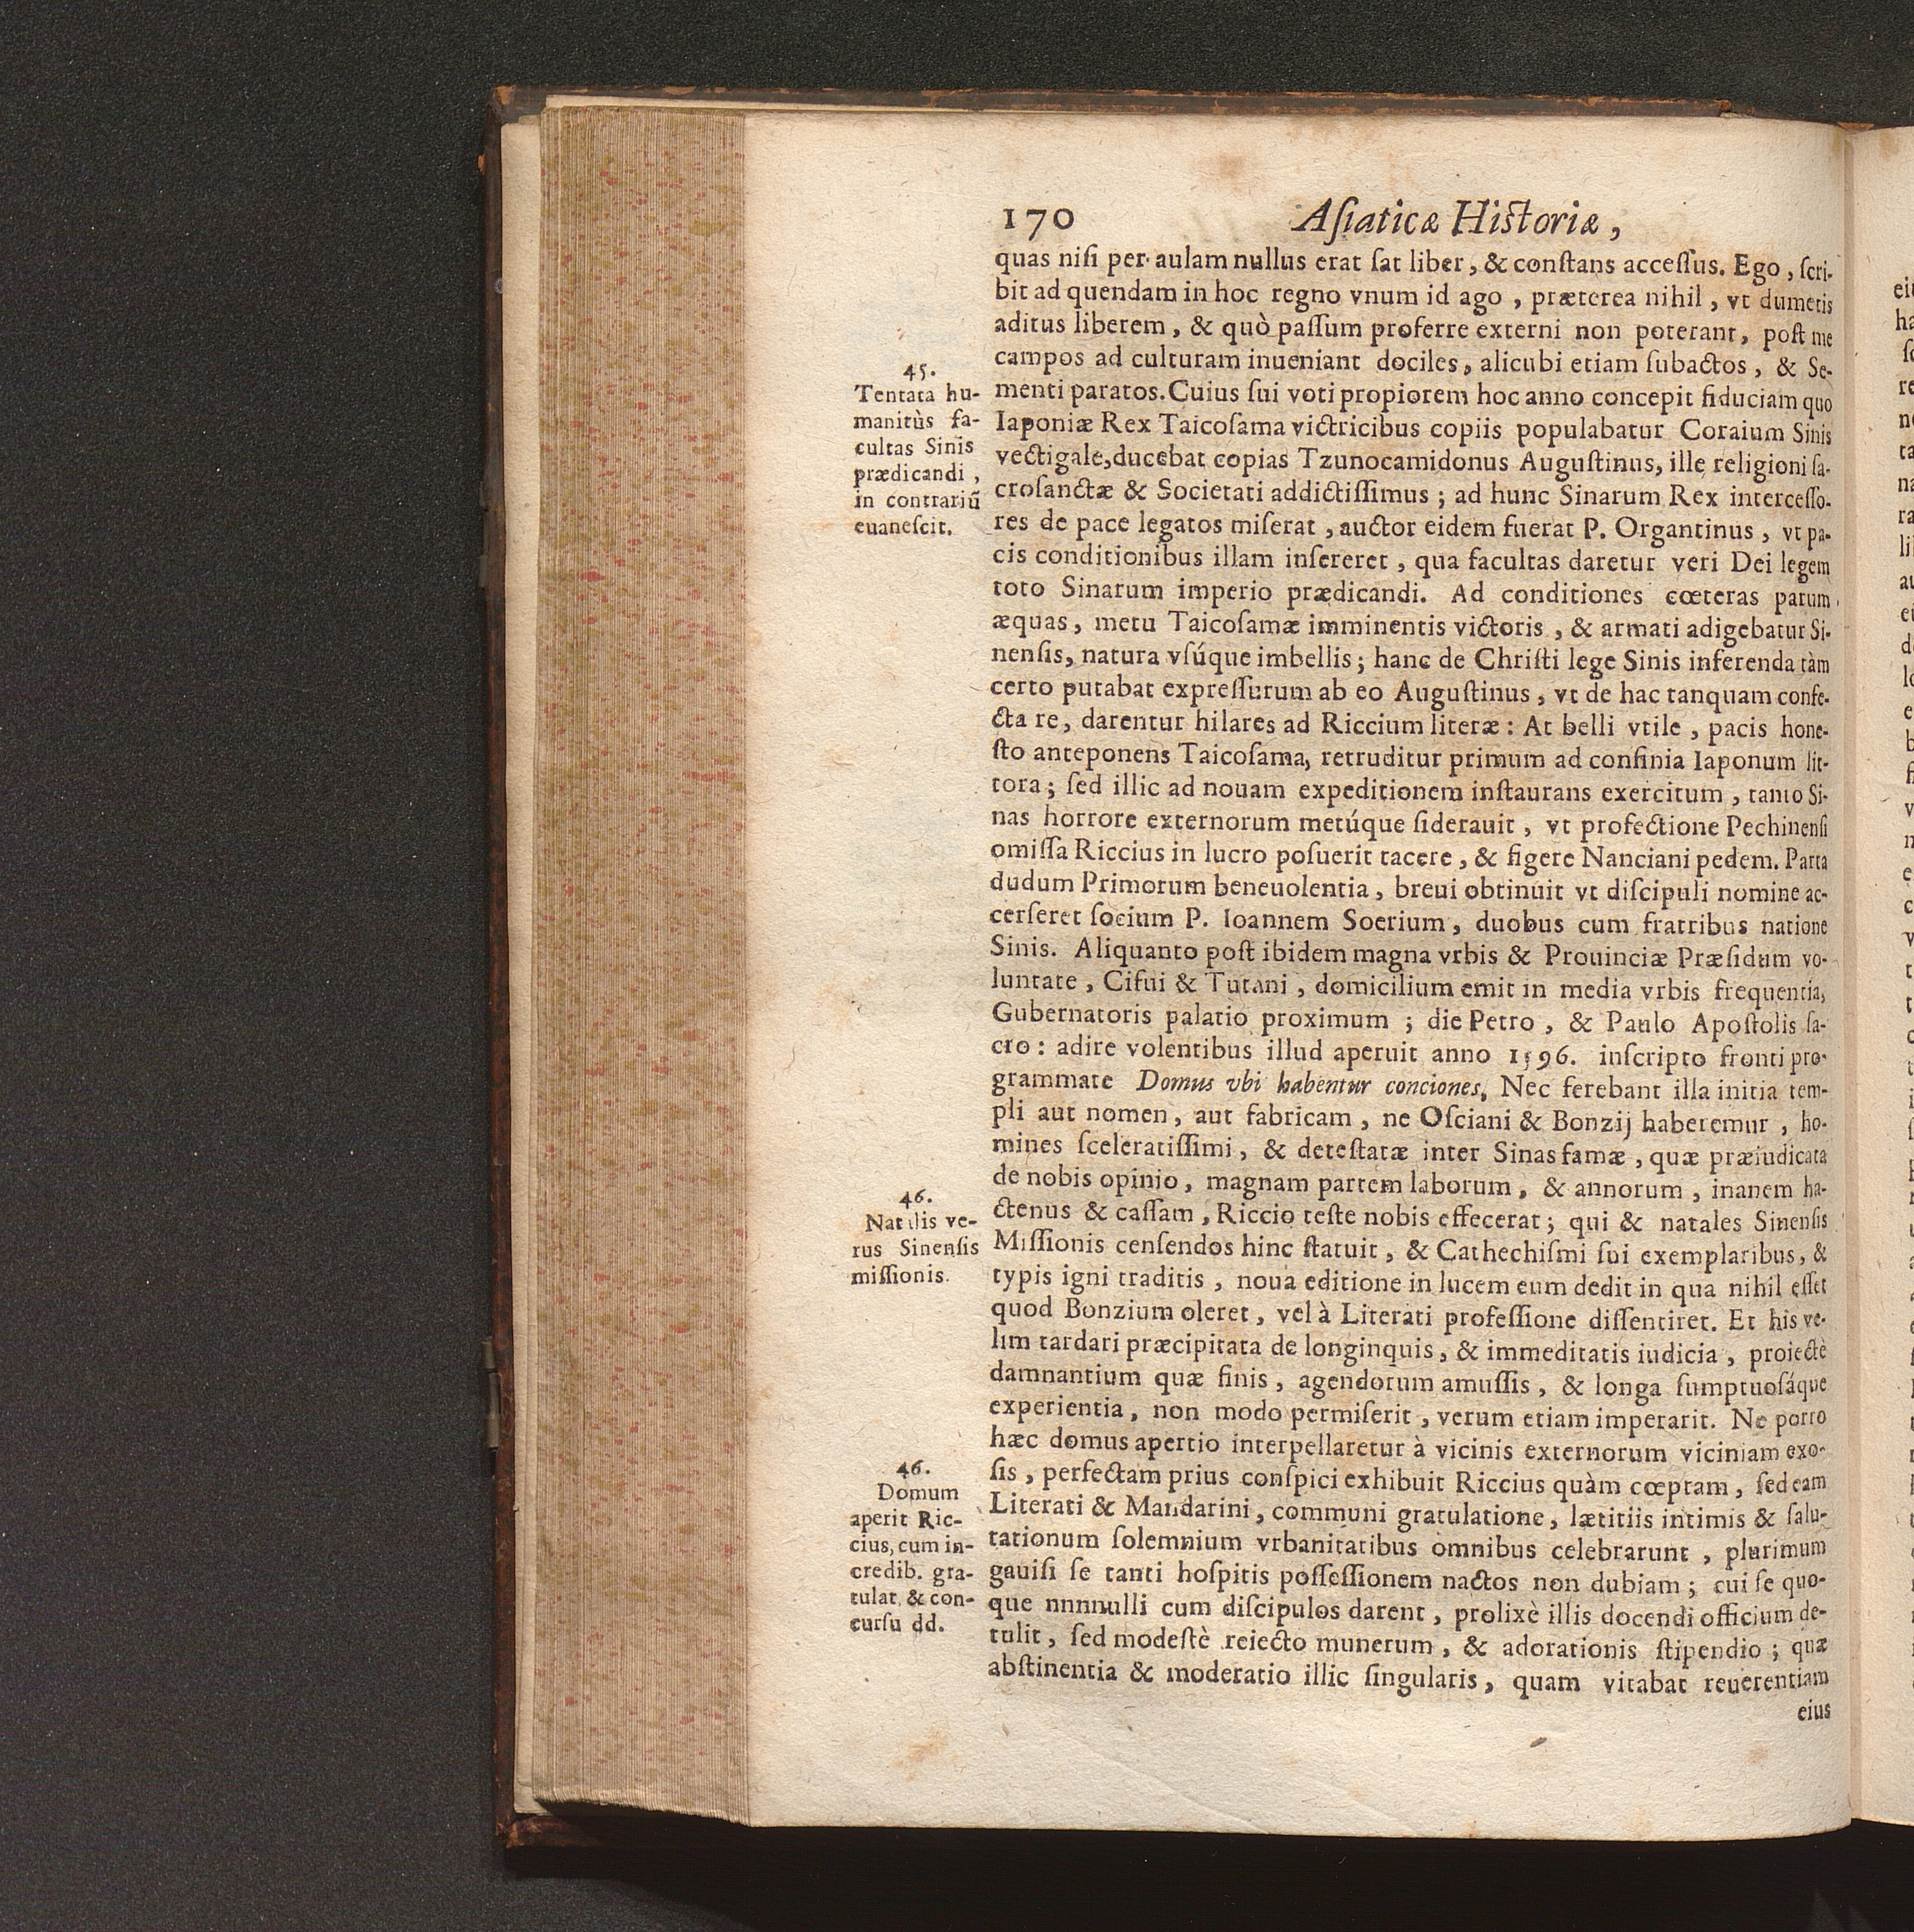 170 Asiaticæ Historiæ,
quas nisi per aulam nullus erat sat liber, & constans accessus. Ego, scri-
bit ad quendam in hoc regno vnum id ago, præterea nihil, vt dumetis
aditus liberem, & quò passum proferre externi non poterant, post me
campos ad culturam inueniant dociles, alicubi etiam subactos, & Se-
menti paratos. Cuius sui voti propiorem hoc anno concepit fiduciam quo
Iaponiæ Rex Taicosama victricibus copiis populabatur Coraium Sinis
vectigale, ducebat copias Tzunocamidonus Augustinus, ille religioni sa-
crosanctæ & Societati addictissimus; ad hunc Sinarum Rex intercesso-
res de pace legatos miserat, auctor eidem fuerat P. Organtinus, vt pa-
cis conditionibus illam insereret, qua facultas daretur veri Dei legem
toto Sinarum imperio prædicandi. Ad conditiones cœteras parum
æquas, metu Taicosamæ imminentis victoris, & armati adigebatur Si-
nensis, natura vsúque imbellis; hanc de Christi lege Sinis inferenda tàm
certo putabat expressurum ab eo Augustinus, vt de hac tanquam confe-
cta re, darentur hilares ad Riccium literæ: At belli vtile, pacis hone-
sto anteponens Taicosama, retruditur primum ad confinia Iaponum lit-
tora; sed illic ad nouam expeditionem instaurans exercitum, tanto Si-
nas horrore externorum metúque siderauit, vt profectione Pechinensi
omissa Riccius in lucro posuerit tacere, & figere Nanciani pedem. Parta
dudum Primorum beneuolentia, breui obtinuit vt discipuli nomine ac-
cerseret socium P. Ioannem Soerium, duobus cum fratribus natione
Sinis. Aliquanto post ibidem magna vrbis & Prouinciæ Præsidum vo-
luntate, Cifui & Tutani, domicilium emit in media vrbis frequentia,
Gubernatoris palatio proximum; die Petro, & Paulo Apostolis sa-
cro: adire volentibus illud aperuit anno 1596. inscripto fronti pro-
grammate Domus vbi habentur conciones, Nec ferebant illa initia tem-
pli aut nomen, aut fabricam, ne Osciani & Bonzij haberemur, ho-
mines sceleratissimi, & detestatæ inter Sinas famæ, quæ præiudicata
de nobis opinio, magnam partem laborum, & annorum, inanem ha-
ctenus & cassam, Riccio teste nobis effecerat; qui & natales Sinensis
Missionis censendos hinc statuit, & Cathechismi sui exemplaribus, &
typis igni traditis, noua editione in lucem eum dedit in qua nihil esset
quod Bonzium oleret, vel à Literati professione dissentiret. Et his ve-
lim tardari præcipitata de longinquis, & immeditatis iudicia, proiectè
damnantium quæ finis, agendorum amussis, & longa sumptuosáque
experientia, non modo permiserit, verum etiam imperarit. Ne porro
hæc domus apertio interpellaretur à vicinis externorum viciniam exo-
sis, perfectam prius conspici exhibuit Riccius quàm cœptam, sed eam
Literati & Mandarini, communi gratulatione, lætitiis intimis & salu-
tationum solemnium vrbanitatibus omnibus celebrarunt, plurimum
gauisi se tanti hospitis possessionem nactos non dubiam; cui se quo-
que nnnnulli cum discipulos darent, prolixè illis docendi officium de-
tulit, sed modestè reiecto munerum, & adorationis stipendio; quæ
abstinentia & moderatio illic singularis, quam vitabat reuerentiam
eius
45.
Tentata hu-
manitùs fa-
cultas Sinis
prædicandi,
in contrariũ
euanescit.
46.
Natalis ve-
rus Sinensis
missionis.
46.
Domum
aperit Ric-
cius, cum in-
credib. gra-
tulat. & con-
cursu dd.